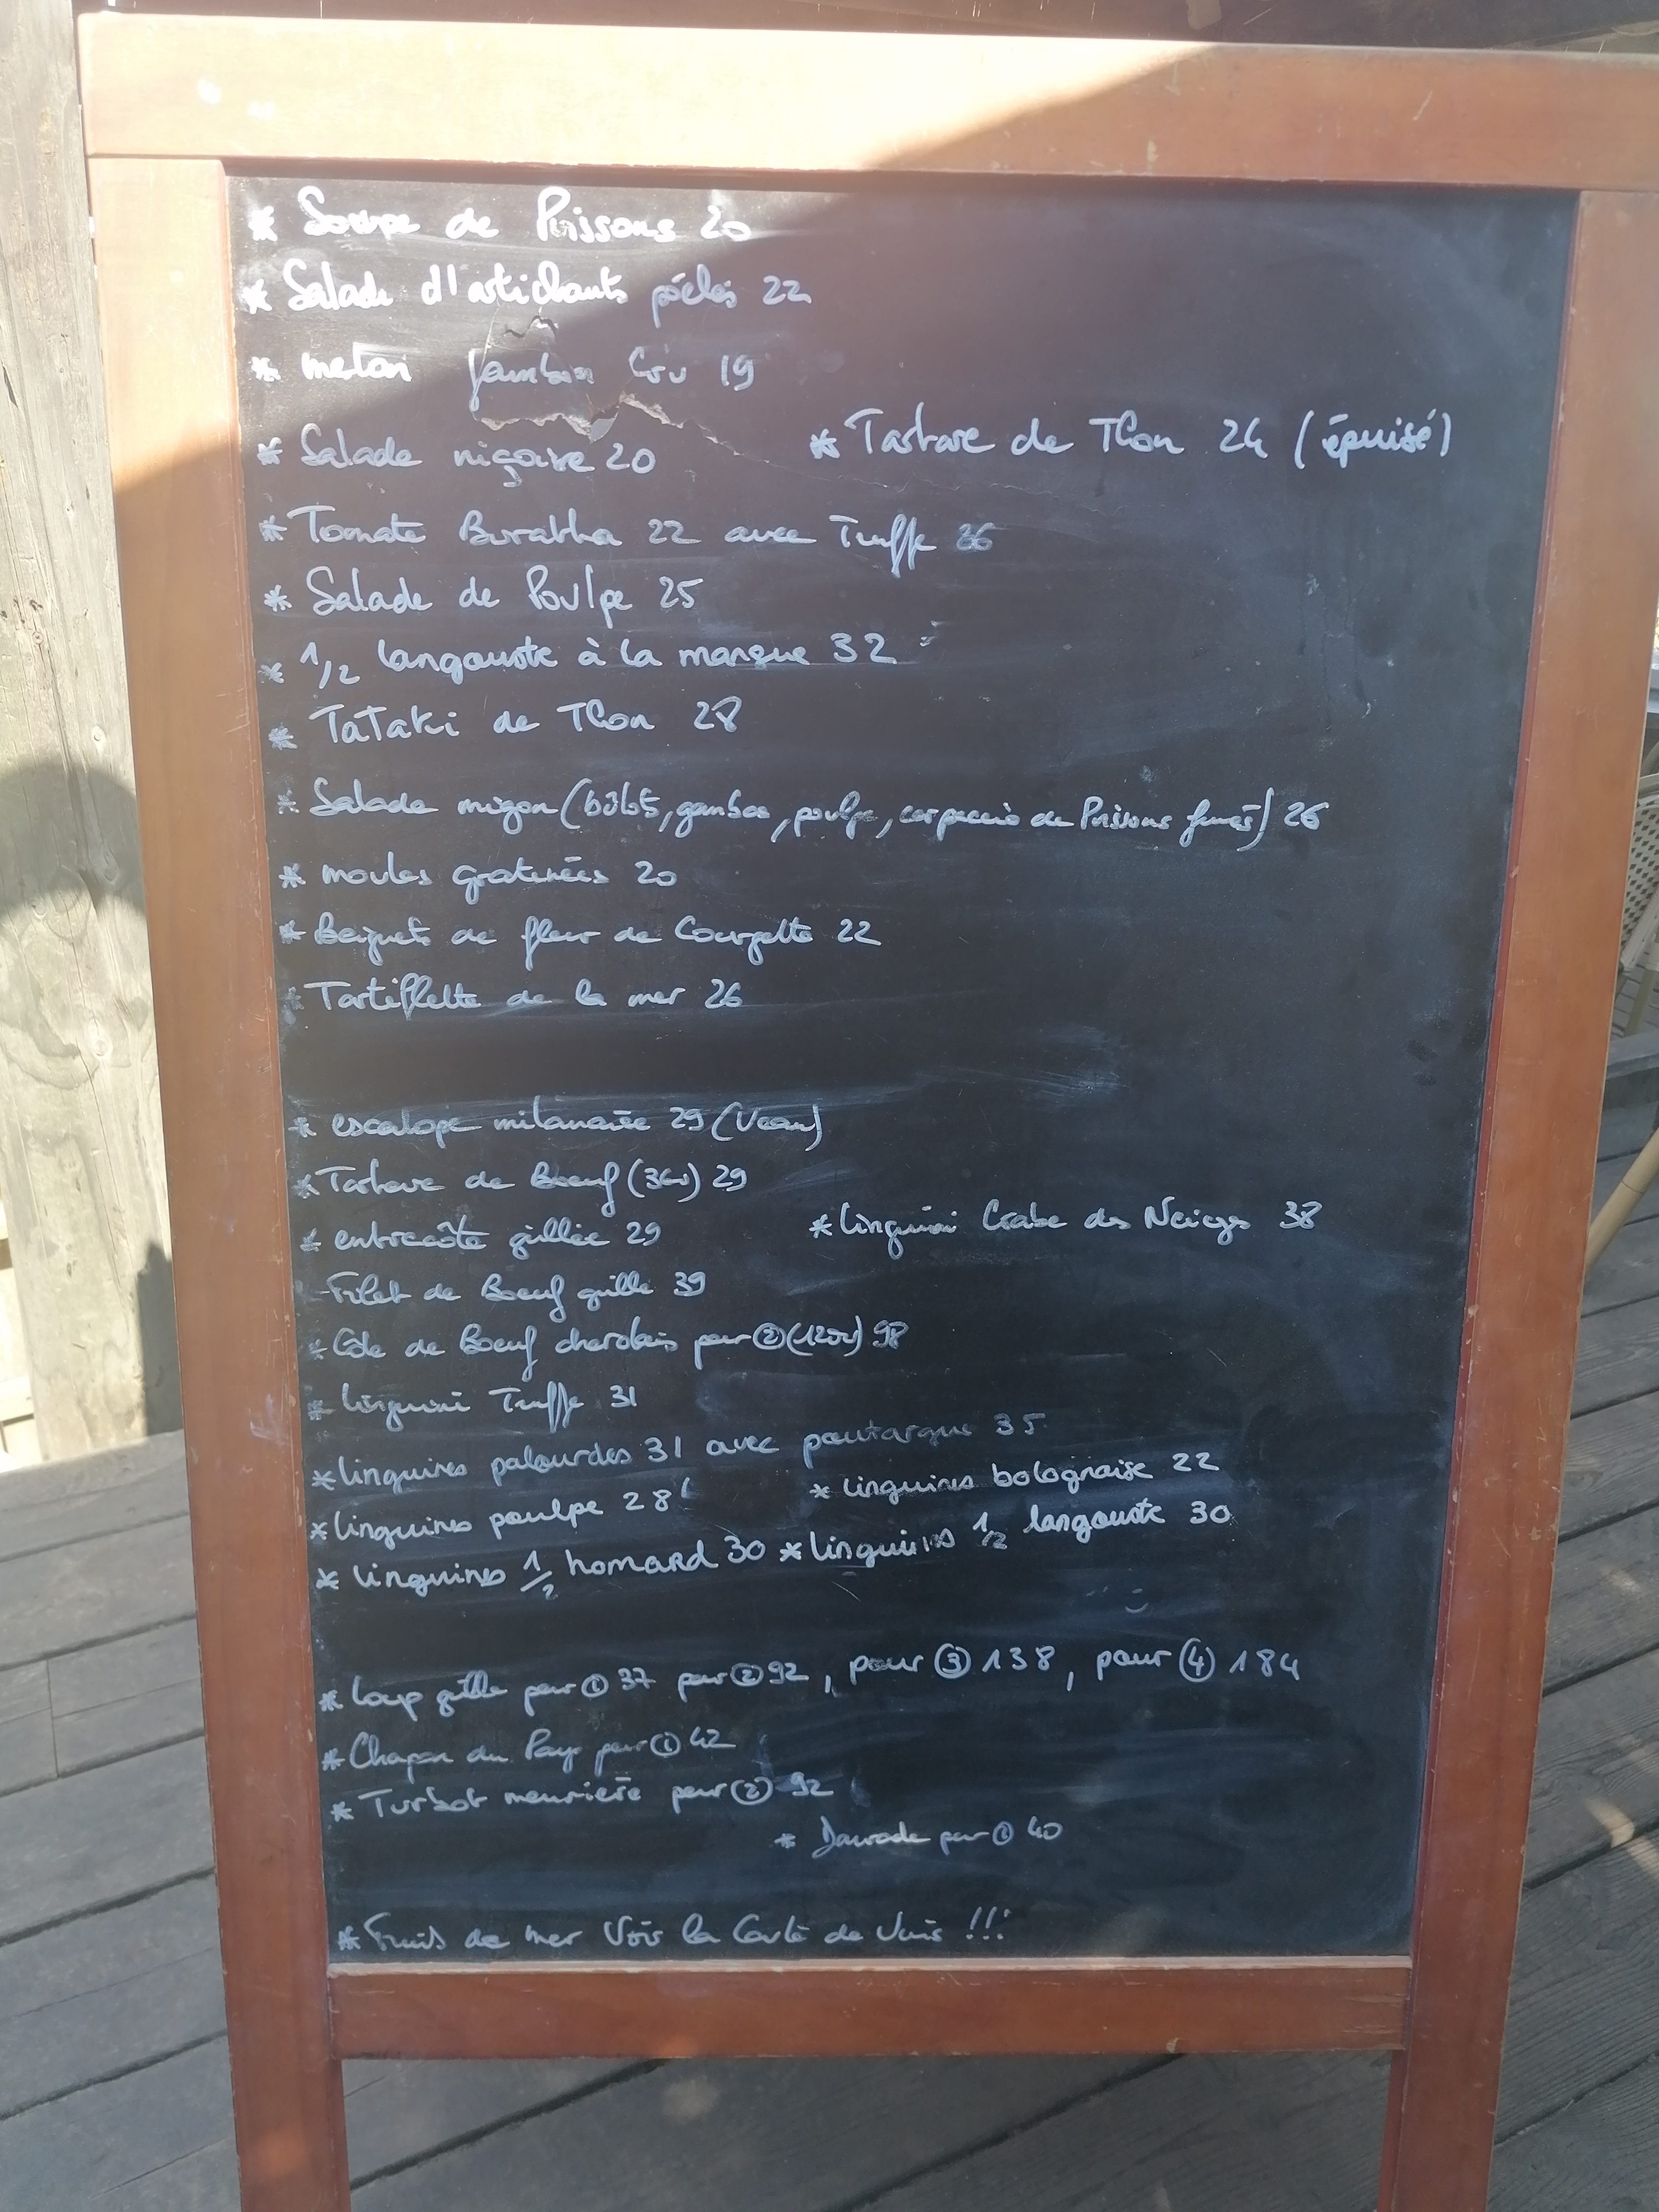 * Soupe de Poissons 20
* Salade d'artichauts poêlés 22
* melon jambon Cru 19
* Salade niçoise 20 * Tartare de Thon 24 (épuisé)
* Tomate Buratta 22 avec Truffe 26
* Salade de Poulpe 25
* 1/2 langouste à la mangue 32
* TaTaki de Thon 28
* Salade (bûlots, gambas, poulpe, carpaccio de Poissons fumés) 26
* moules gratinées 20
* Beignets de fleur de Courgette 22
* Tartiflette de la mer 26
* escalope milanaise 29 (Veau)
* Tartare de Boeuf 29
* entrecôte grillée 29 * linguini Crabe des Neiges 38
Filet de Boeuf grillé 39
* Côte de Boeuf charolais pour ② 98
* linguini Truffe 31
* linguines palourdes 31 avec poutargue 35
* linguines poulpe 28 * linguines bolognaise 22
* linguines 1/2 homard 30 * linguines 1/2 langouste 30
* Loup grillé pour ① 37 pour ② 92, pour ③ 138, pour ④ 184
* Chapon du Pays pour ① 42
* Turbot meunière pour ② 92
* Daurade pour ① 40
* Fruits de mer Voir la Carte de